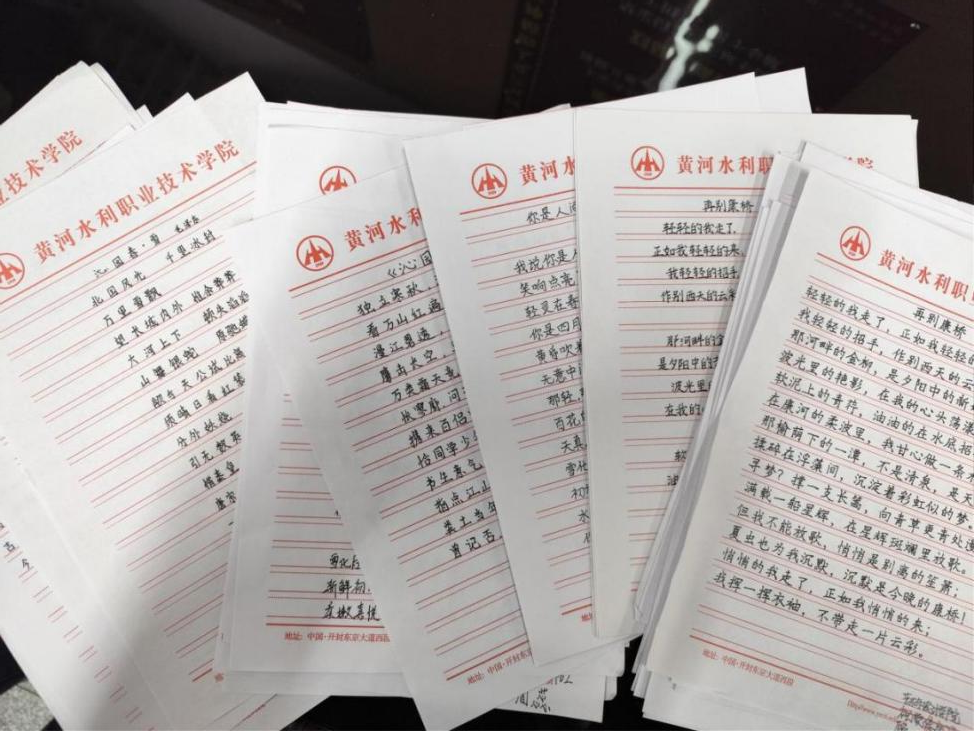 业技术学院
黄河水利职业技术学院
沁园春·雪 毛泽东
北国风光 千里冰封
万里雪飘
望长城内外 惟余莽莽
大河上下 顿失滔滔
山舞银蛇 原驰蜡
欲与天公试比高
须晴日看红装
分外妖娆
引无数英
惜秦皇
唐宗
雪化后
新鲜初
柔嫩喜悦
地址：中国·开封东京大道西段
黄河水利
《沁园
独立寒秋，
看万山红遍
漫江碧透，
鹰击长空，
万类霜天竞
怅寥廓，问
携来百侣
恰同学少
书生意气
指点江山
粪土当年
曾记否
地址：中国·开封东京大道西段
黄河水
你是人间
我说你是人
笑响点亮
轻灵在春
你是四月
黄昏吹
无意中
那轻，
百花的
天真
雪化
初
水
你
地址
黄河水利职
学院
再别康桥
轻轻的我走了，
正如我轻轻的来，
我轻轻的招手
作别西天的云彩
那河畔的金
是夕阳中的
波光里
在我的心
软
油
黄河水利职
再别康桥
轻轻的我走了，正如我轻轻
我轻轻的招手，作别西天的云
那河畔的金柳，是夕阳中的新
波光里的艳影，在我的心头荡漾
软泥上的青荇，油油的在水底招
在康河的柔波里，我甘心做一条
那榆荫下的一潭，不是清泉，是天
揉碎在浮藻间，沉淀着彩虹似的梦
寻梦？撑一支长篙，向青草更青处漫
满载一船星辉，在星辉斑斓里放歌。
但我不能放歌，悄悄是别离的笙箫；
夏虫也为我沉默，沉默是今晚的康桥！
悄悄的我走了，正如我悄悄的来；
我挥一挥衣袖，不带走一片云彩。
地址：中国·开封东京大道西段